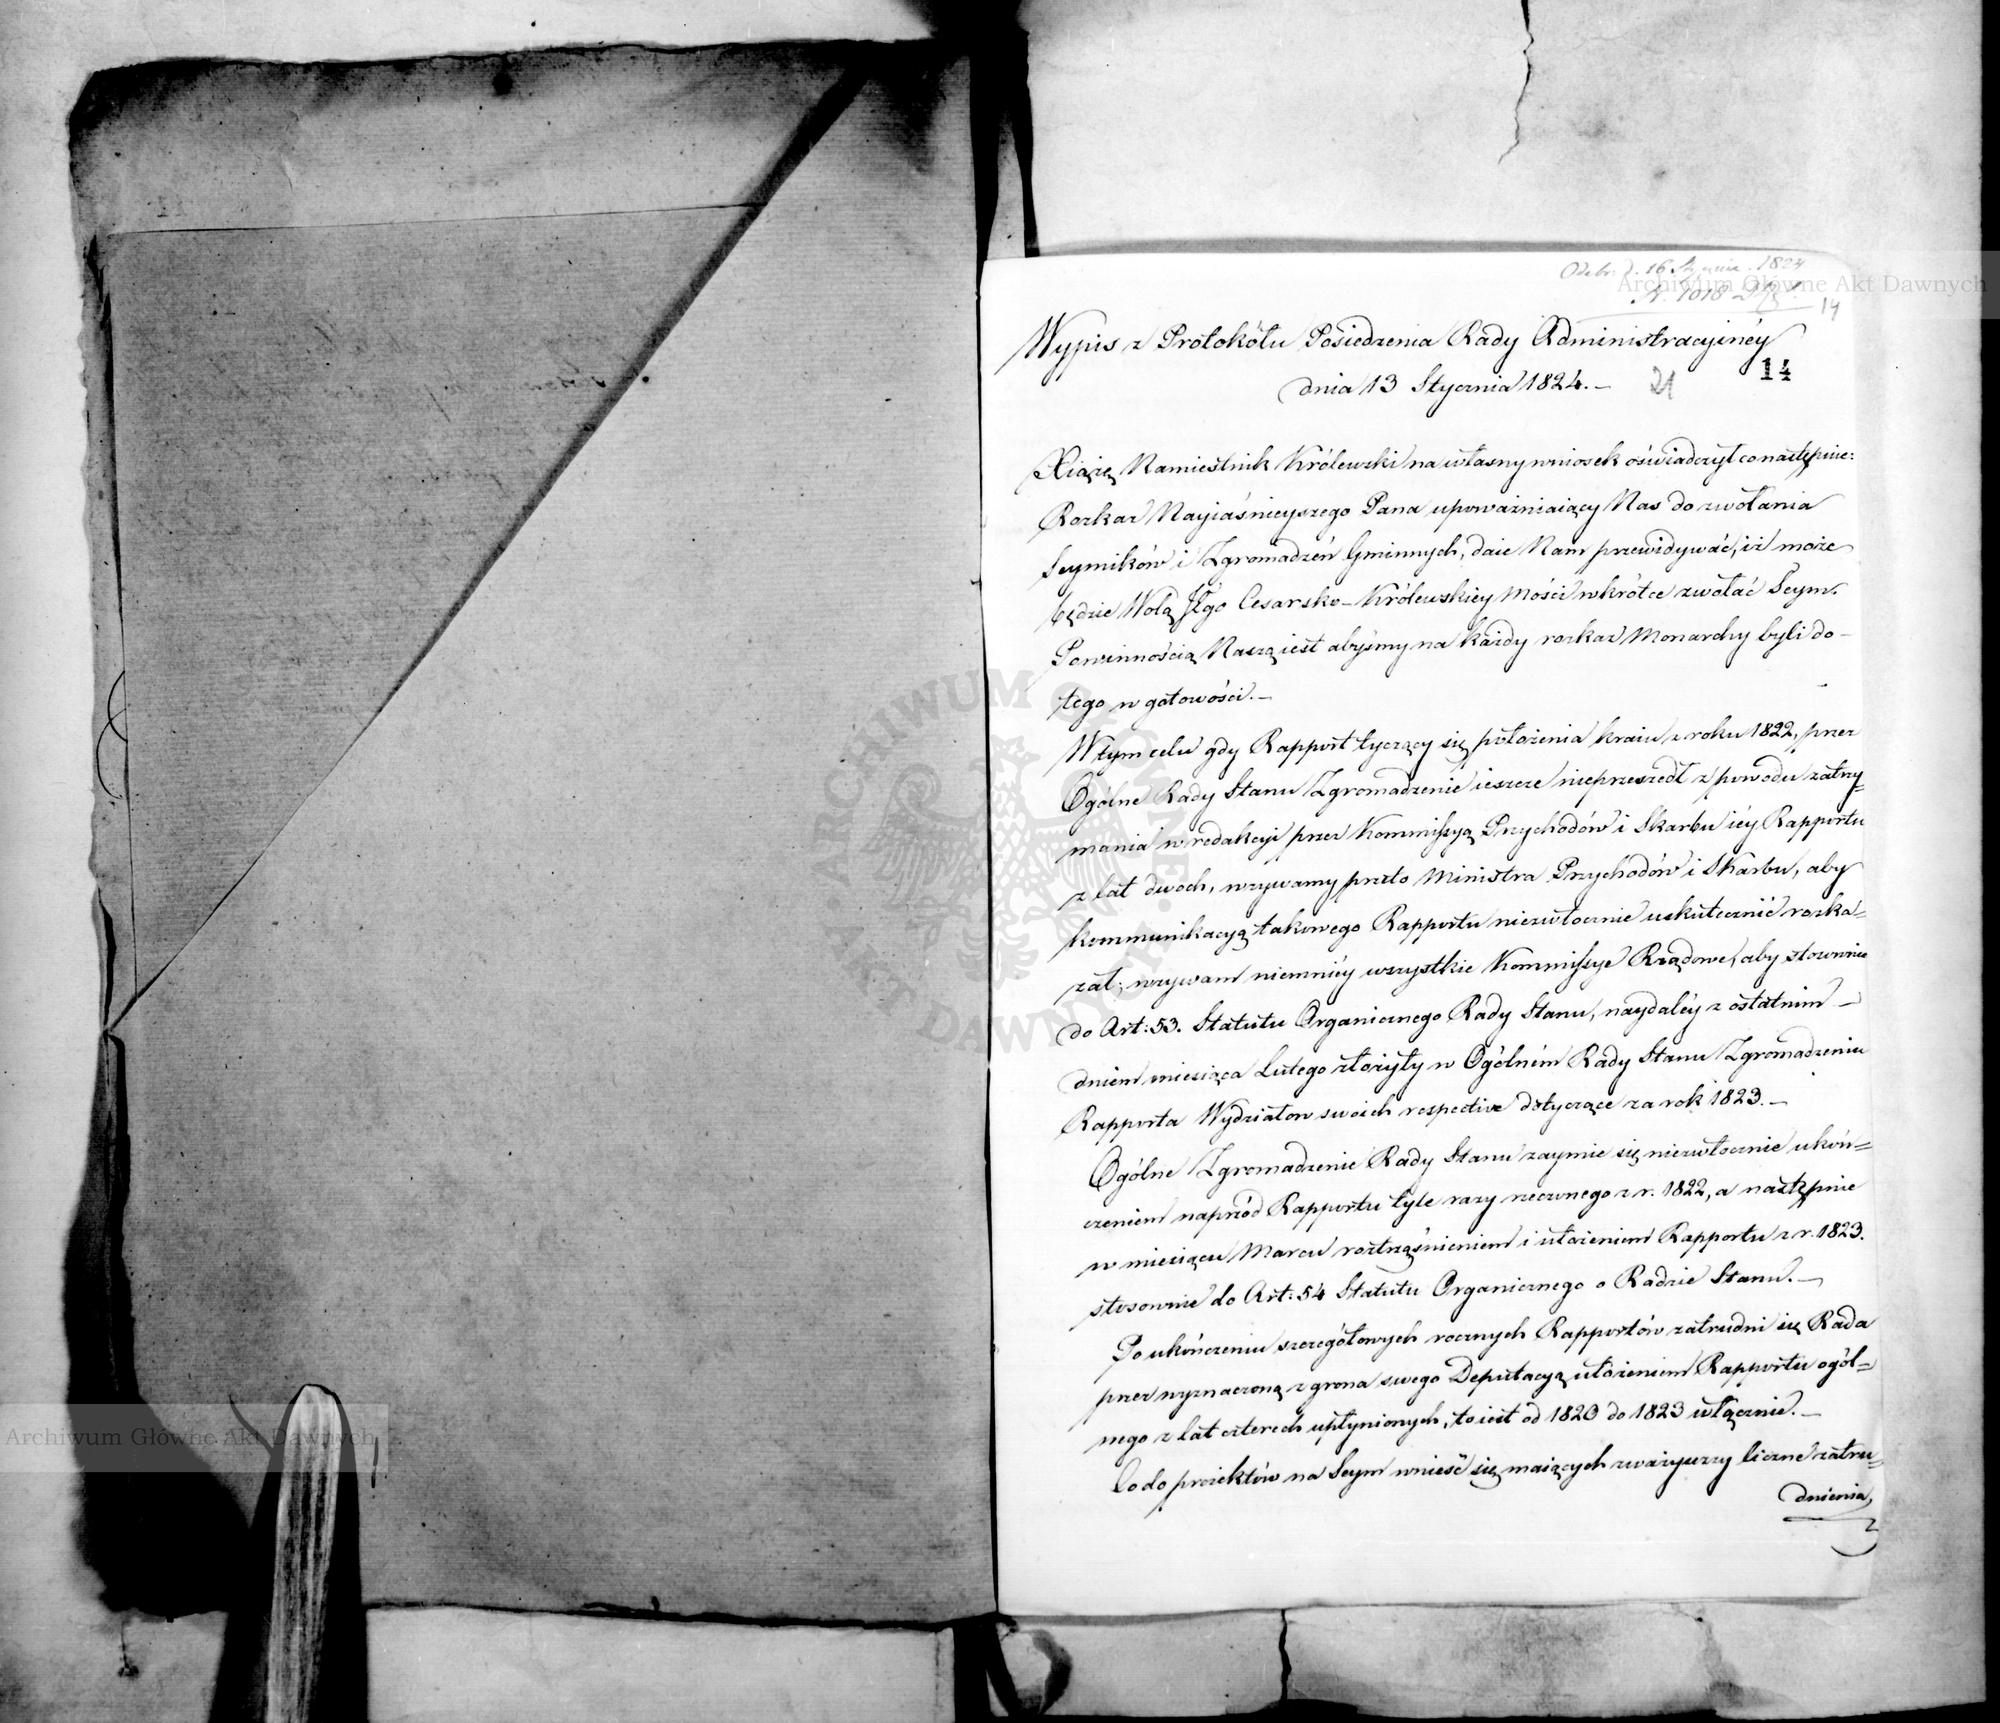 Odebr. d. 16 Stycznia 1824
N. 1018
14
Wypis z Protokółu Posiedzenia Rady Administracyiney
14
dnia 13 Stycznia 1824. –
21
Xiążę Namiestnik Królewski na własny wniosek oświadczył co następuie:
Rozkaz Nayiaśnieyszego Pana upoważniaiący Nas do zwołania
Seymików i Zgromadzeń Gminnych, daie Nam przewidywać, iż może
będzie Wolą Jego Cesarsko-Królewskiey Mości wkrótce zwołać Seym.
Powinnością Naszą iest abyśmy na każdy rozkaz Monarchy byli do –
tego w gotowości. –
W tym celu gdy Rapport tyczący się położenia kraiu z roku 1822, przez
Ogólne Rady Stanu Zgromadzenie ieszcze nieprzeszedł z powodu zatrzy=
mania w redakcyi przez Kommissyą Przychodów i Skarbu iéy Rapportu
z lat dwoch, wzywamy przeto Ministra Przychodów i Skarbu, aby
kommunikacyą takowego Rapportu niezwłocznie uskutecznić rozka=
zał; wzywam niemniéy wszystkie Kommissye Rządowe, aby stosownie
do Art: 53. Statutu Organicznego Rady Stanu, naydaléy z ostatnim –
dniem miesiąca Lutego złożyły w Ogólném Rady Stanu Zgromadzeniu
Rapporta Wydziałow swoich respective dotyczące za rok 1823. –
Ogólne Zgromadzenie Rady Stanu zaymie się niezwłocznie ukoń=
czeniem naprzód Rapportu tyle razy rzeczonego z r. 1822, a następnie
w miesiącu Marcu roztrząśnieniem i ułożeniem Rapportu z r. 1823.
stosownie do Art: 54 Statutu Organicznego o Radzie Stanu. –
Po ukończeniu szczegółowych rocznych Rapportów zatrudni się Rada
przez wyznaczoną z grona swego Deputacyą ułożeniem Rapportu ogól=
nego z lat czterech upłynionych, to iest od 1820 do 1823 włącznie. –
Co do proiektów na Seym wnieść się maiących zważywszy liczne zatru=
dnienia,
Archiwum Główne Akt Dawnych
Archiwum Główne Akt Dawnych
ARCHIWUM GŁÓWNE AKT DAWNYCH